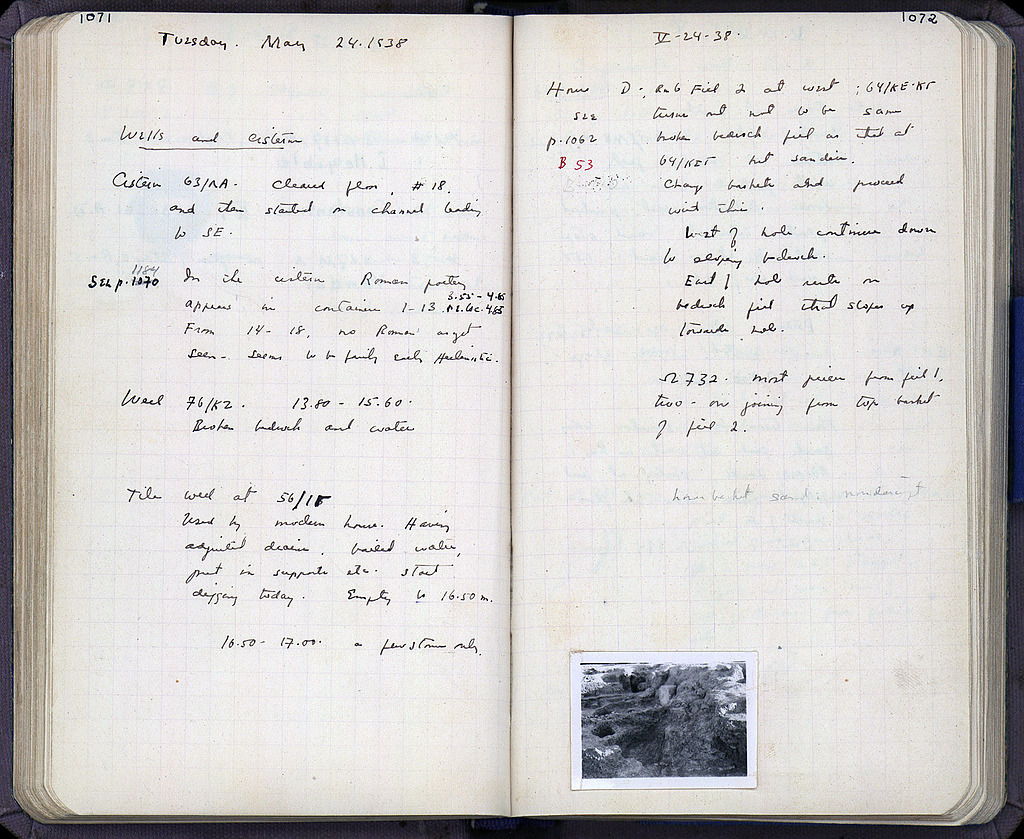 1071
Tuesday. May 24.1938
Wells and cisterns
Cistern 63/NA. Cleaned floor, #18.
and then started on channel leading
to SE.
1184
See p. 1070
In the cistern Roman pottery
appears in containers 1-13.
3.55 - 4.85
From 14 - 18, no Roman as yet
seen - seems to be fairly early Hellenistic.
Well 76/KZ. 13.80 - 15.60.
Broken bedrock and water
Tile well at 56/IE
Used by modern house. Having
adjusted drains, bailed water,
put in supports etc. start
digging today. Empty to 16.50 m.
16.50 - 17.00. a few stones only.
1072
V-24-38.
House D: Fill 2 at west; 64/KE-KF
See
turns out not to be same
p. 1062
broken bedrock fill as that at
B 53
64/KEF but sandier.
Change baskets and proceed
with this.
West of hole continue down
to sloping bedrock.
East of hole rests on
bedrock fill that slopes up
towards hole.
Ω 732. most pieces from fill 1,
two - one joining from top basket
of fill 2.
basket sand: nondescript